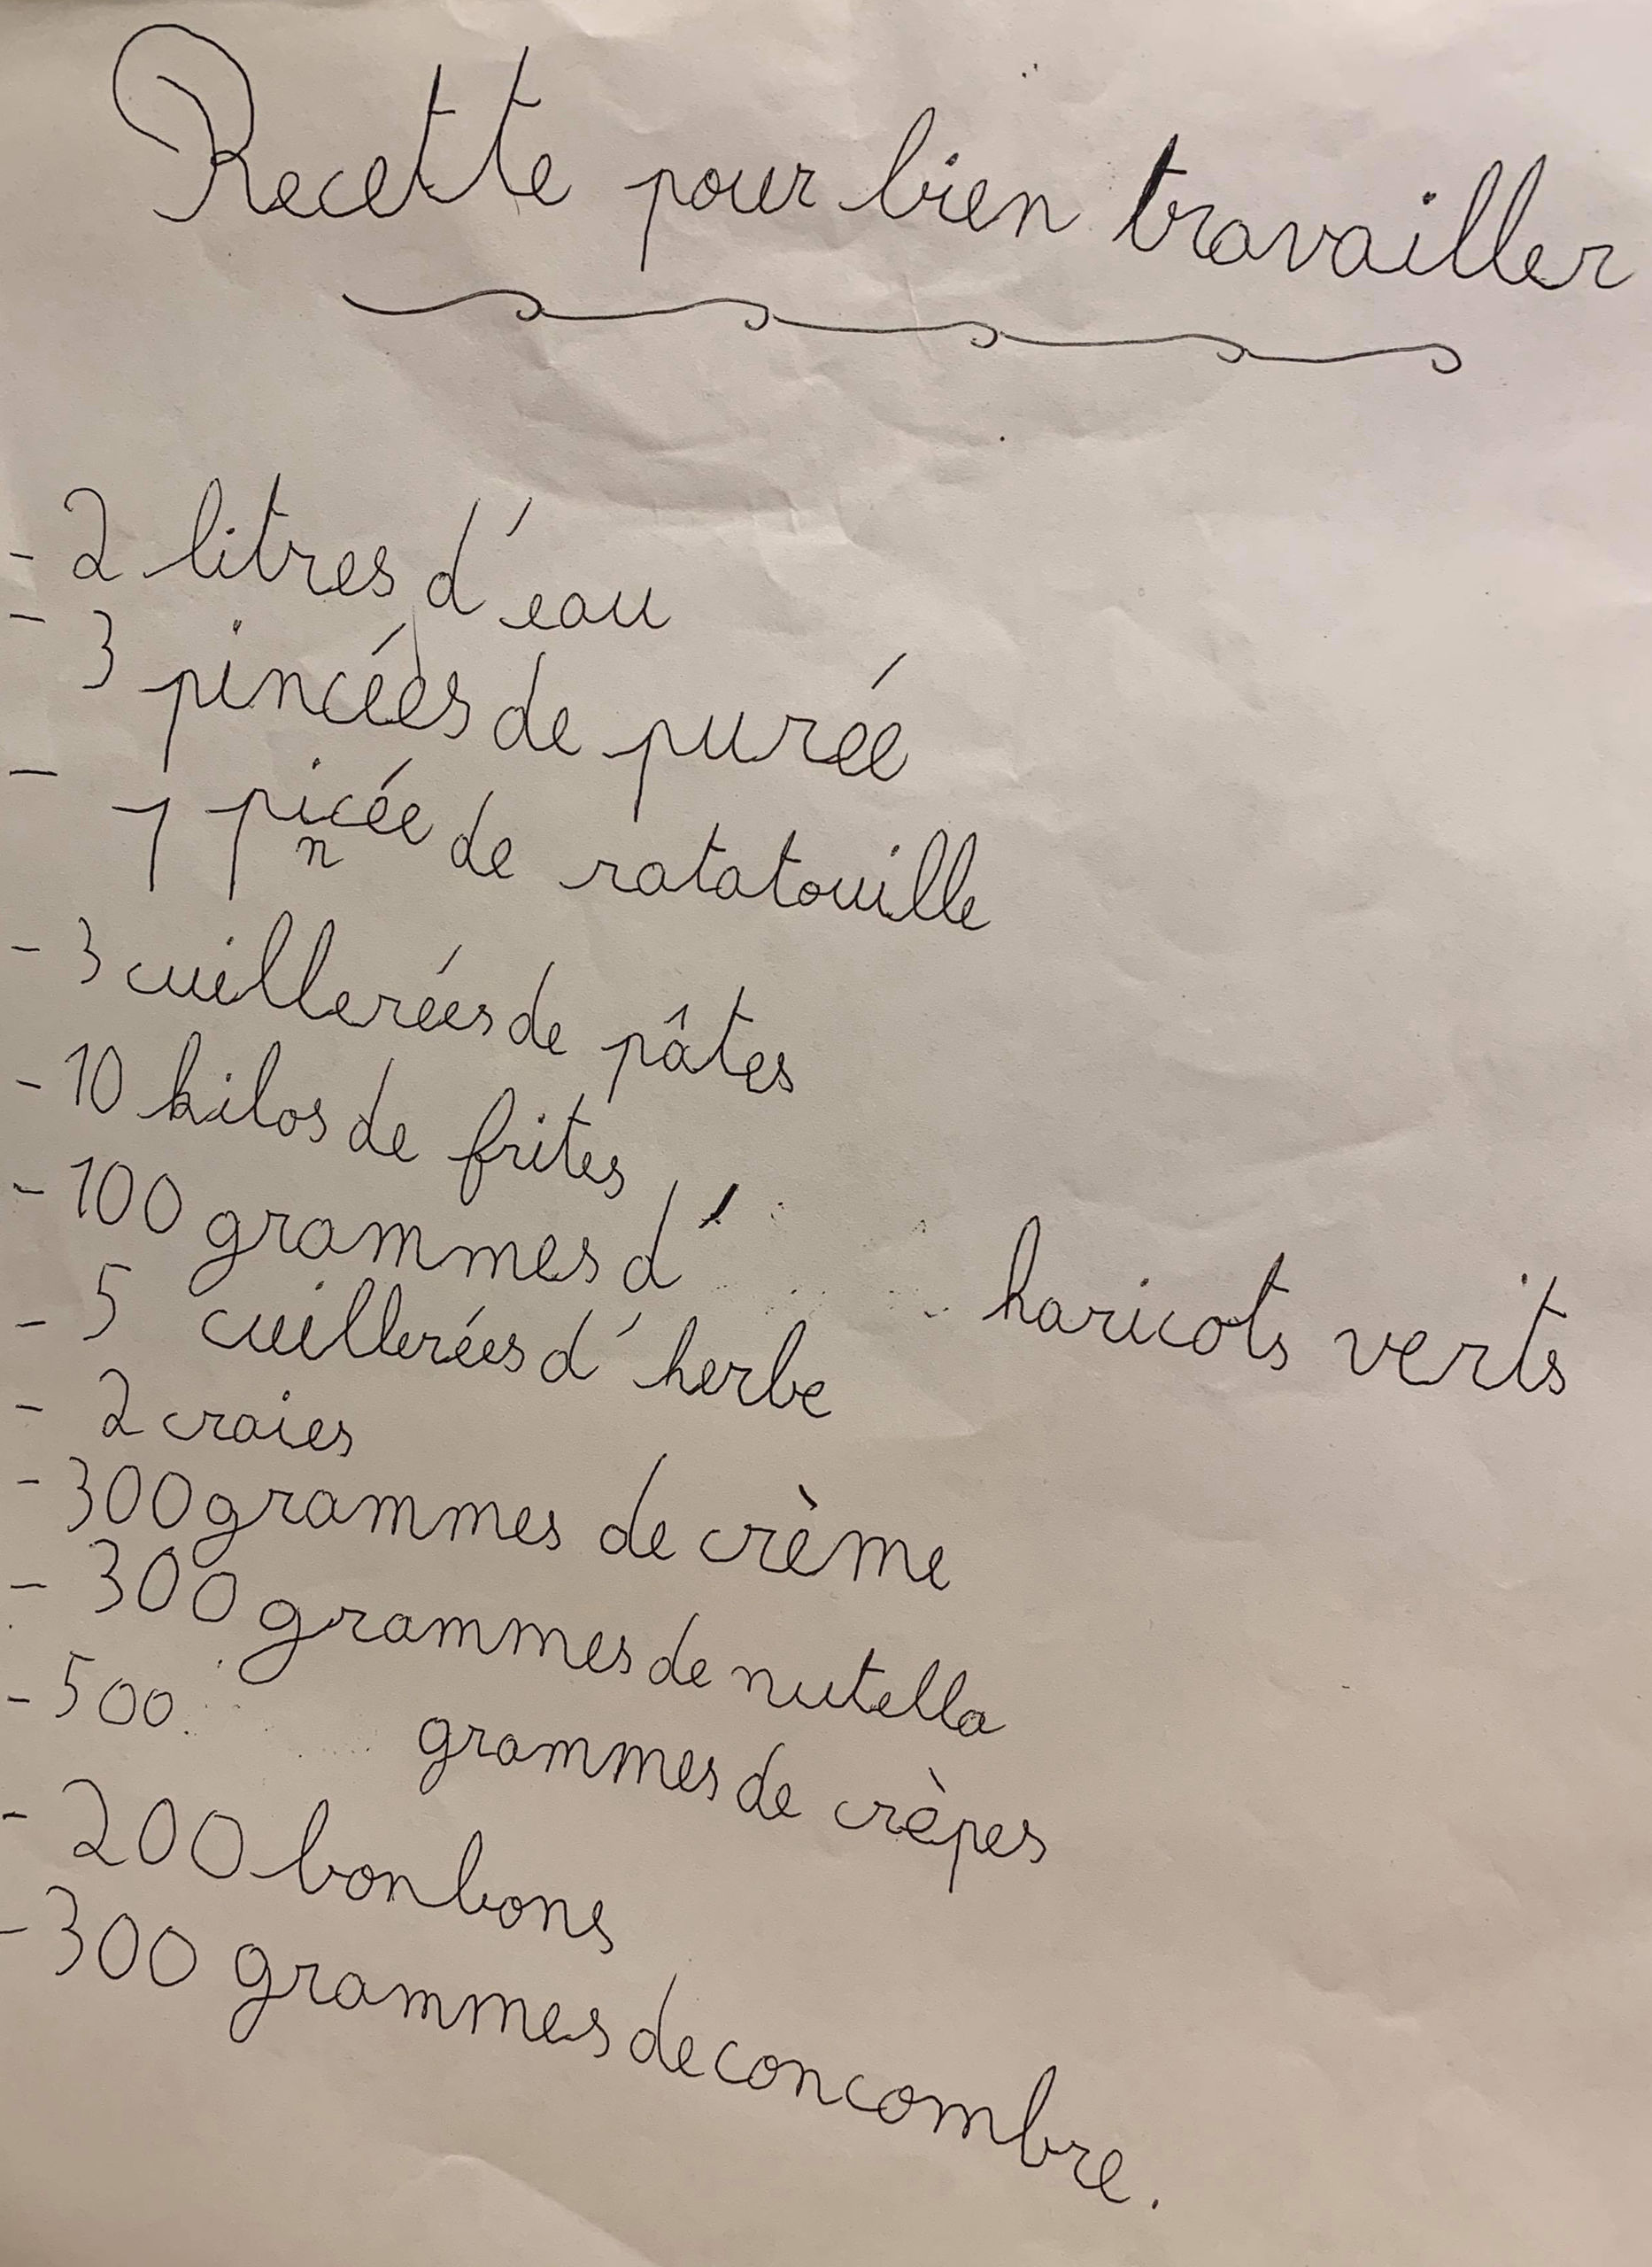 Recette pour bien travailler
- 2 litres d'eau
- 3 pincées de purée
- 1 pincée de ratatouille
- 3 cuillerées de pâtes
- 10 kilos de frites
- 100 grammes d' haricots verts
- 5 cuillerées d'herbe
- 2 craies
- 300 grammes de crème
- 300 grammes de nutella
- 500 grammes de crèpes
- 200 bonbons
- 300 grammes de concombre.